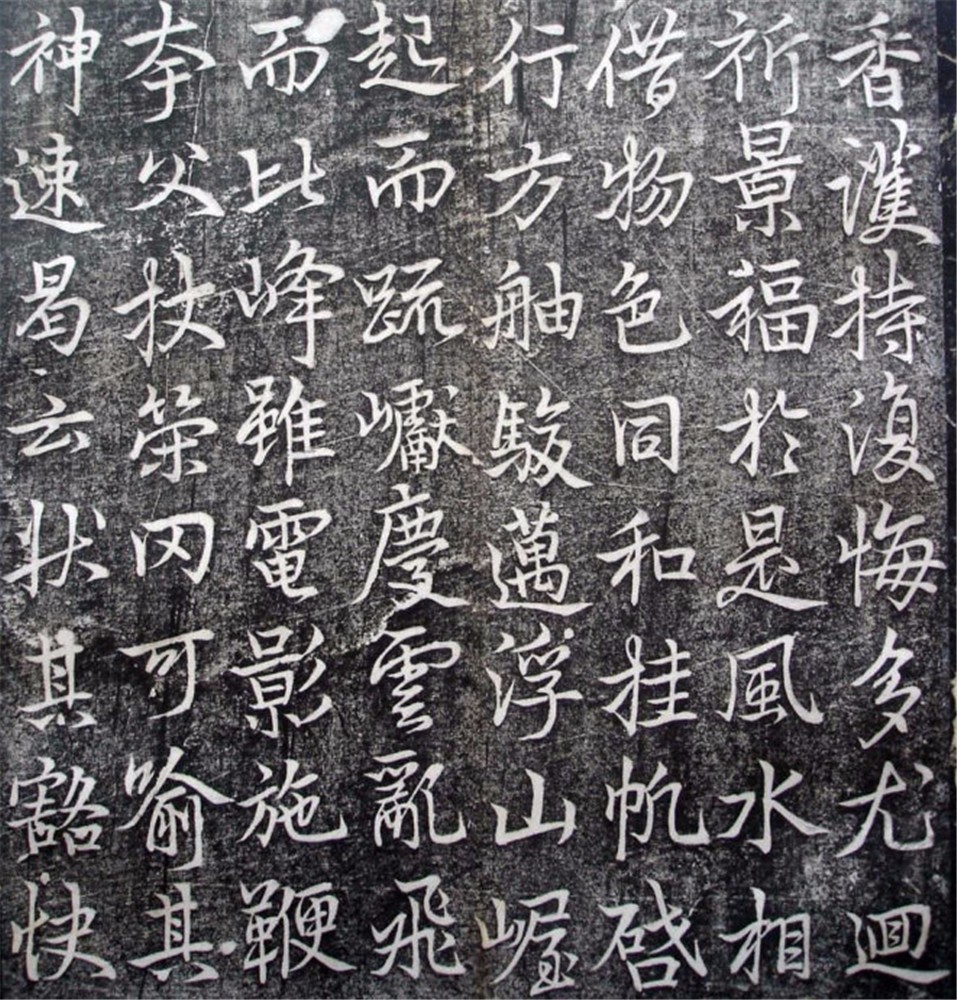 香護持復悔多尤迴
祈景福於是風水相
借物色同和挂帆啓
行方舳駿邁浮山崛
起而疏巘慶雲亂飛
而比峰雖電影施鞭
夸父杖策罔可喻其
神速曷云狀其豁快